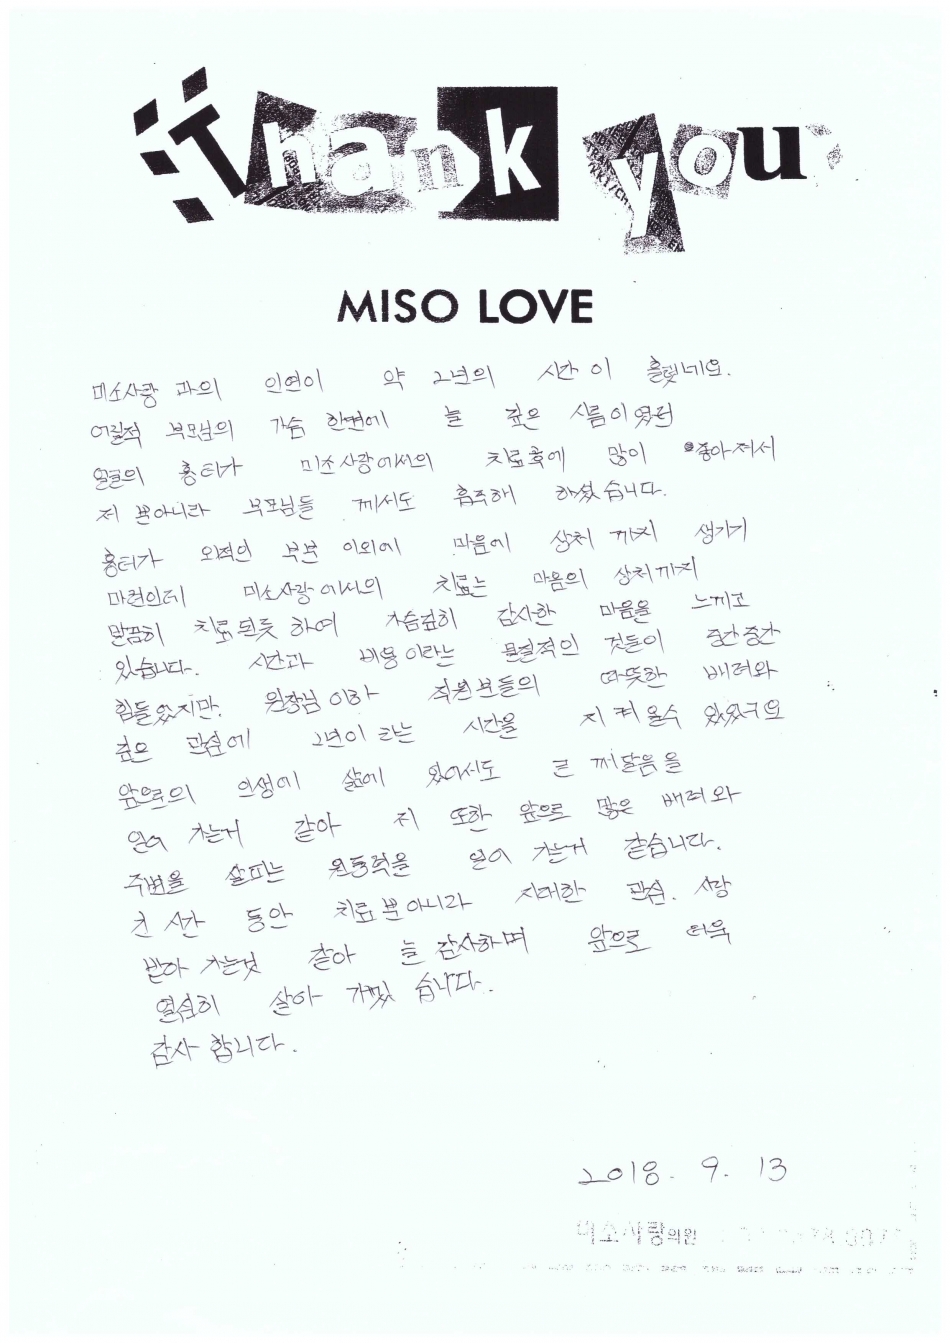 Thank you
MISO LOVE
미소사랑 과의 인연이 약 2년의 시간이 흘렀네요.
어릴적 부모님의 가슴 한켠에 늘 깊은 시름이였던
얼굴의 흉터가 미소사랑에서의 치료후에 많이 좋아져서
저 뿐아니라 부모님들 께서도 흡족해 하셨습니다.
흉터가 외적인 부분 이외에 마음에 상처 까지 생기기
마련인데 미소사랑에서의 치료는 마음의 상처까지
말끔히 치료된듯 하여 가슴깊히 감사한 마음을 느끼고
있습니다. 시간과 비용이라는 물질적인 것들이 중간중간
힘들었지만, 원장님이하 직원분들의 따뜻한 배려와
깊은 관심에 2년이라는 시간을 지켜올수 있었구요
앞으로의 인생에 삶에 있어서도 큰 깨달음을
얻어 가는거 같아 저 또한 앞으로 많은 배려와
주변을 살피는 원동력을 얻어 가는거 같습니다.
긴 시간 동안 치료뿐아니라 지대한 관심. 사랑
받아 가는것 같아 늘 감사하며 앞으로 더욱
열심히 살아 가겠습니다.
감사 합니다.
2018. 9. 13
미소사랑의원